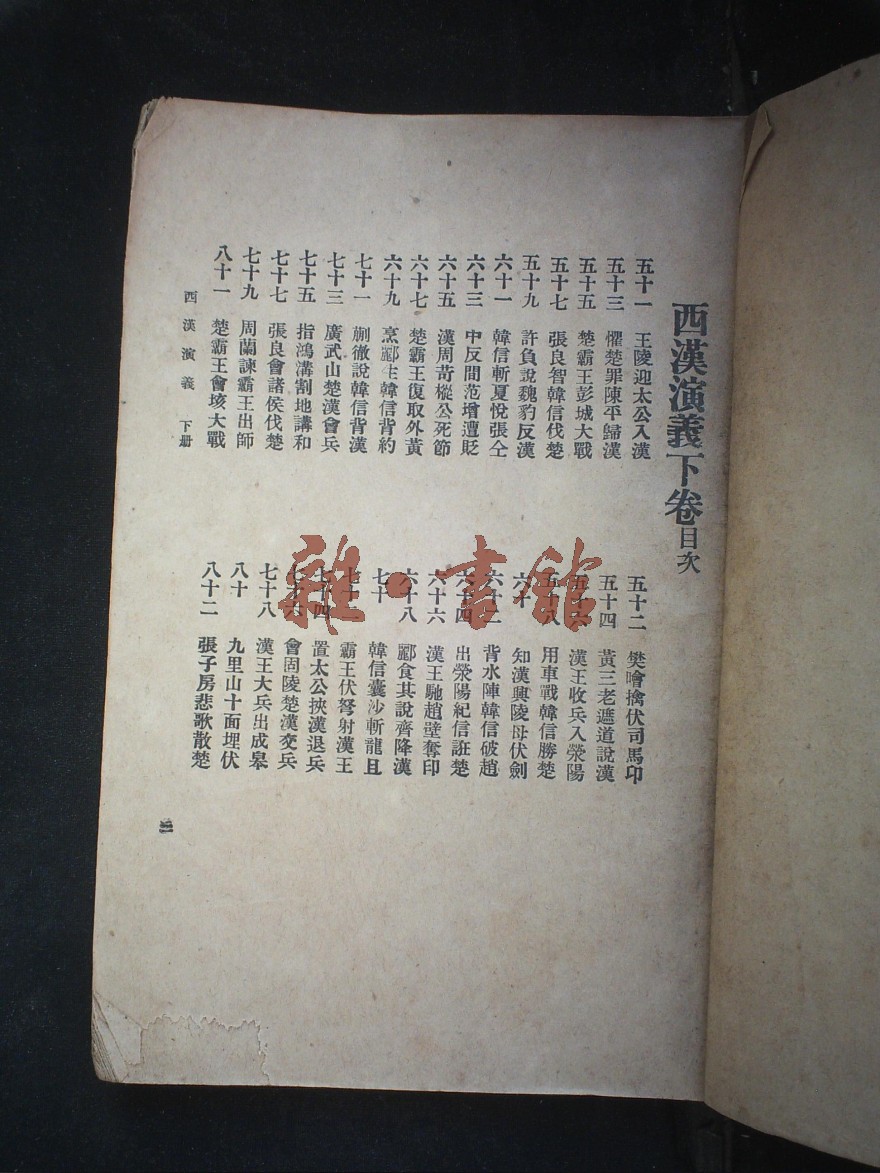 西漢演義下卷目次
五十一 王陵迎太公入漢
五十二 樊噲擒伏司馬卬
五十三 懼楚罪陳平歸漢
五十四 黃三老遮道說漢
五十五 楚霸王彭城大戰
五十六 漢王收兵入滎陽
五十七 張良智韓信伐楚
五十八 用車戰韓信勝楚
五十九 許負說魏豹反漢
六十 知漢興陵母伏劍
六十一 韓信斬夏悅張仝
六十二 背水陣韓信破趙
六十三 中反間范增遭貶
六十四 出滎陽紀信誑楚
六十五 漢周苛樅公死節
六十六 漢王馳趙壁奪印
六十七 楚霸王復取外黃
六十八 酈食其說齊降漢
六十九 烹酈生韓信背約
七十 韓信囊沙斬龍且
七十一 蒯徹說韓信背漢
七十二 霸王伏弩射漢王
七十三 廣武山楚漢會兵
七十四 置太公挾漢退兵
七十五 指鴻溝割地講和
七十六 會固陵楚漢交兵
七十七 張良會諸侯伐楚
七十八 漢王大兵出成皋
七十九 周蘭諫霸王出師
八十 九里山十面埋伏
八十一 楚霸王會垓大戰
八十二 張子房悲歌散楚
西漢演義 下册
雜·書館